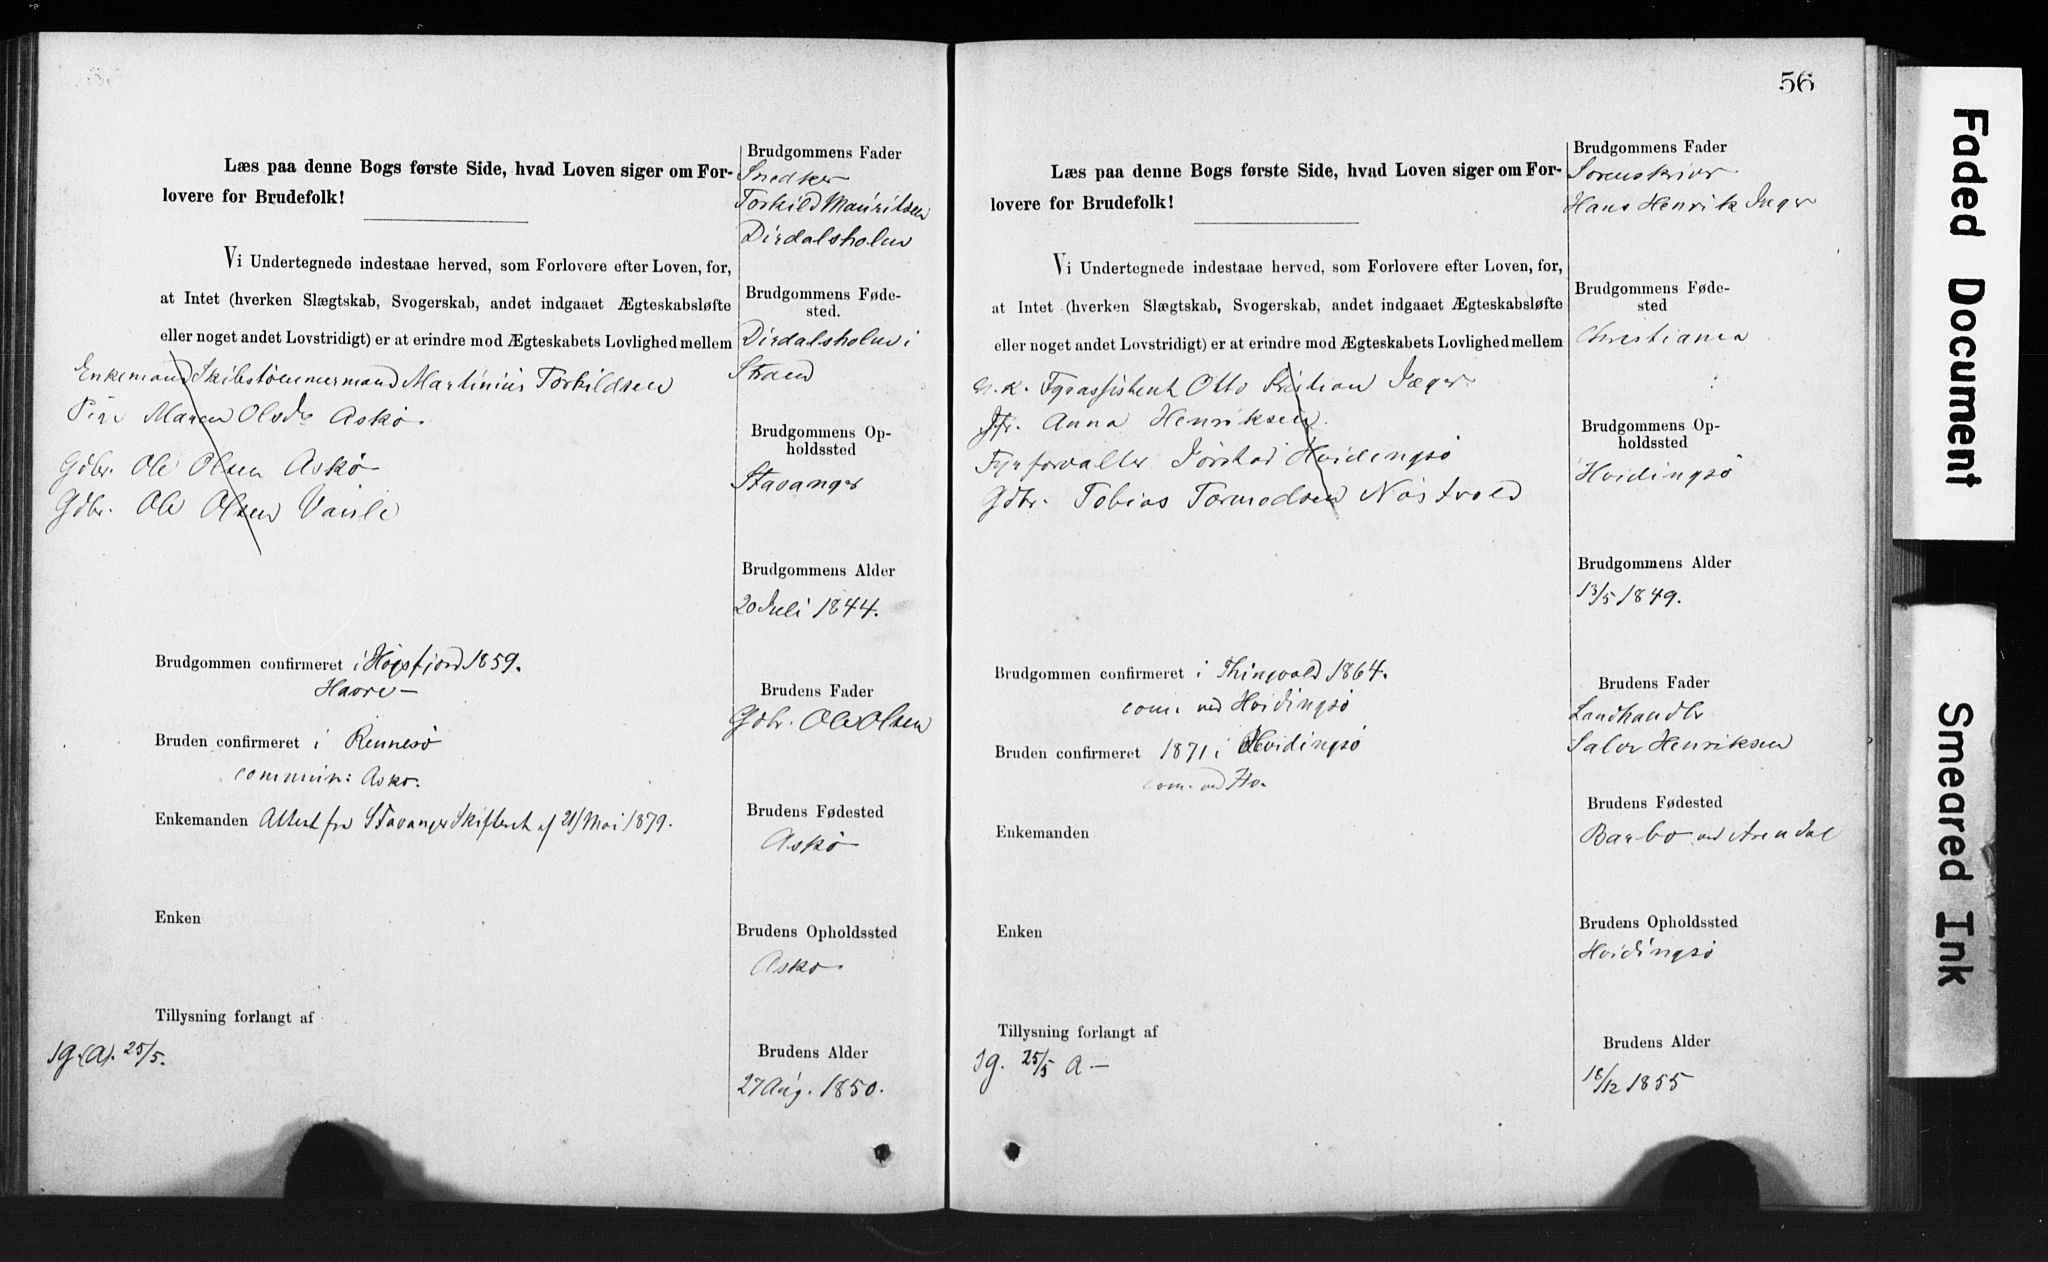 Læs paa denne Bogs første Side, hvad Loven siger om For-
lovere for Brudefolk!
Vi Undertegnede indestaae herved, som Forlovere efter Loven, for,
at Intet (hverken Slægtskab, Svogerskab, andet indgaaet Ægteskabsløfte
eller noget andet Lovstridigt) er at erindre mod Ægteskabets Lovlighed mellem
Enkemand Skibstømmermand Martinius Torkildsen
Pige Maren Olsdr Askø.
Gdbr. Ole Olsen Askø
Gdbr. Ole Olsen
Brudgommen confirmeret i Høgsfjord 1859.
Bruden confirmeret i Rennesø
commun: Askø.
Enkemanden Attest fra Stavanger Skifteret af 21/Mai 1879.
Enken
Tillysning forlangt af
19.(A). 25/5.
Brudgommens Fader
Snedker
Torkild Mauritsen
Dirdalsholm
Brudgommens Føde-
sted.
Dirdalsholm i
Strand
Brudgommens Op-
holdssted
Stavanger
Brudgommens Alder
20 Juli 1844.
Brudens Fader
Gdbr. Ole Olsen
Brudens Fødested
Askø
Brudens Opholdssted
Askø.
Brudens Alder
27 Aug. 1850.
56
Læs paa denne Bogs første Side, hvad Loven siger om For-
lovere for Brudefolk!
Vi Undertegnede indestaae herved, som Forlovere efter Loven, for,
at Intet (hverken Slægtskab, Svogerskab, andet indgaaet Ægteskabsløfte
eller noget andet Lovstridigt) er at erindre mod Ægteskabets Lovlighed mellem
U.K. Fyrassistent Otto Kristian Jæger
Jfr. Anna Henriksen.
Fyrforvalter Jørstad Hvidingsø
Gdbr. Tobias Tormodsen Nøstvold
Brudgommen confirmeret i Thingvold 1864.
com. ved Hvidingsø
Bruden confirmeret 1871 i Hvidingsø
com. ved Hv.
Enkemanden
Enken
Tillysning forlangt af
19. 25/5 A –
Brudgommens Fader
Sorenskriver
Hans Henrik Jæger
Brudgommens Føde-
sted
Christiania
Brudgommens Op-
holdssted
Hvidingsø
Brudgommens Alder
13/5 1849.
Brudens Fader
Landhandler
Salve Henriksen
Brudens Fødested
Barbo ved Arendal
Brudens Opholdssted
Hvidingsø
Brudens Alder
18/12 1855
Faded Document
Smeared Ink